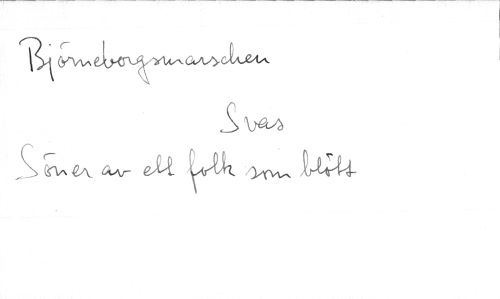 Björneborgsmarschen
Svas
Söner av ett folk som blött